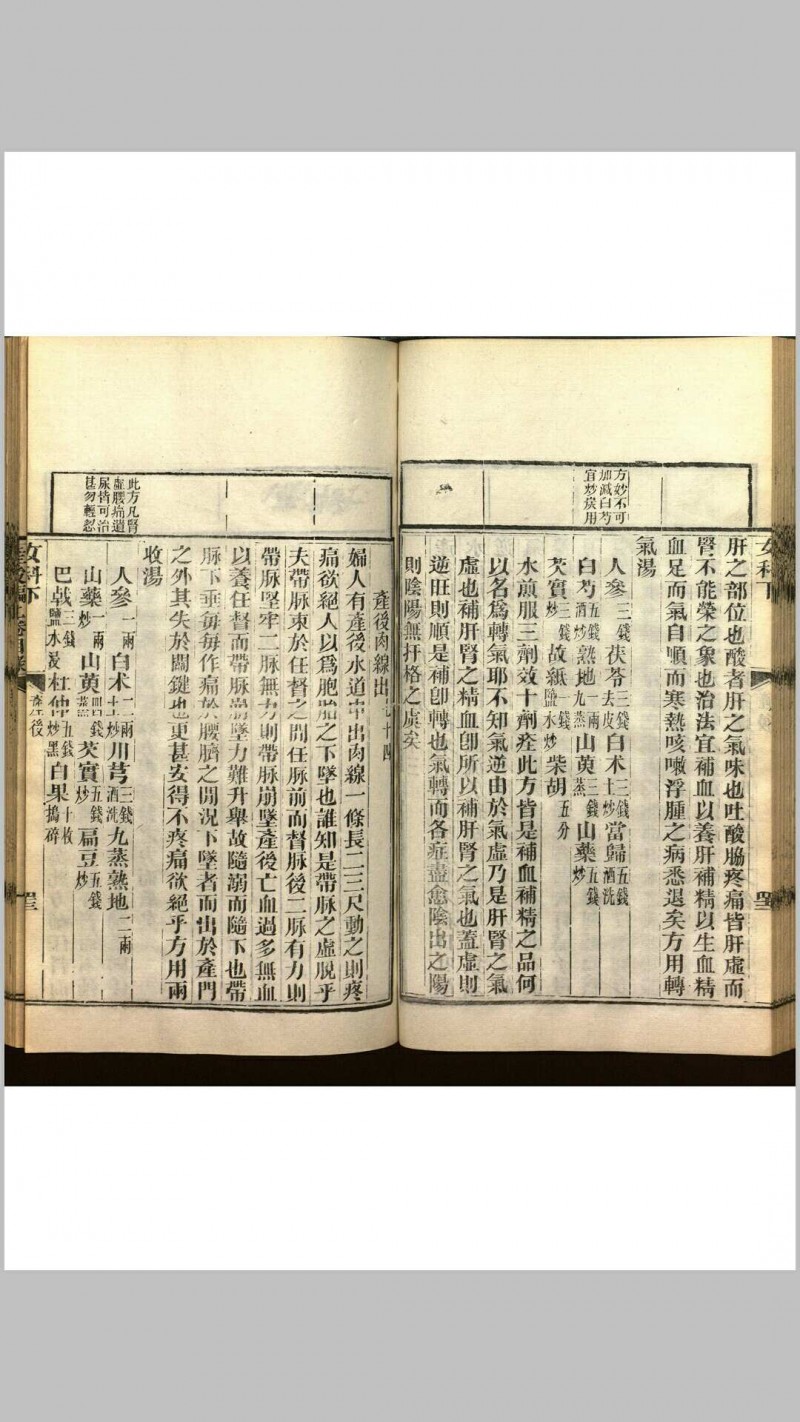 女科下
方妙不可
加減白芍
宜炒炭用
肝之部位也酸者肝之氣味也吐酸脇疼痛皆肝虛而
腎不能榮之象也治法宜補血以養肝補精以生血精
血足而氣自順而寒熱咳嗽浮腫之病悉退矣方用轉
氣湯
人參三錢 茯苓三錢去皮 白术三錢土炒 當歸五錢酒洗
白芍五錢酒炒 熟地一兩九蒸 山萸三錢蒸 山藥五錢炒
芡實三錢炒 故紙一錢鹽水炒 柴胡五分
水煎服三劑效十劑痊此方皆是補血補精之品何
以名爲轉氣耶不知氣逆由於氣虛乃是肝腎之氣
虛也補肝腎之精血卽所以補肝腎之氣也蓋虛則
逆旺則順是補卽轉也氣轉而各症盡愈陰出之陽
則陰陽無扞格之虞矣
此方凡腎
虛腰痛遺
尿皆可治
甚勿輕忽
產後肉線出七十四
婦人有產後水道中出肉線一條長二三尺動之則疼
痛欲絕人以爲胞胎之下墜也誰知是帶脉之虛脫乎
夫帶脉束於任督之間任脉前而督脉後二脉有力則
帶脉堅牢二脉無力則帶脉崩墜產後亡血過多無血
以養任督而帶脉崩墜力難升舉故隨溺而隨下也帶
脉下垂每每作痛於腰臍之間況下墜者而出於產門
之外其失於關鍵也更甚安得不疼痛欲絕乎方用兩
收湯
人參一兩 白术二兩土炒 川芎三錢酒洗 九蒸熟地二兩
山藥一兩炒 山萸四錢蒸 芡實五錢炒 扁豆五錢炒
巴戟三錢鹽水浸 杜仲五錢炒黑 白果十枚搗碎
女科下
產後